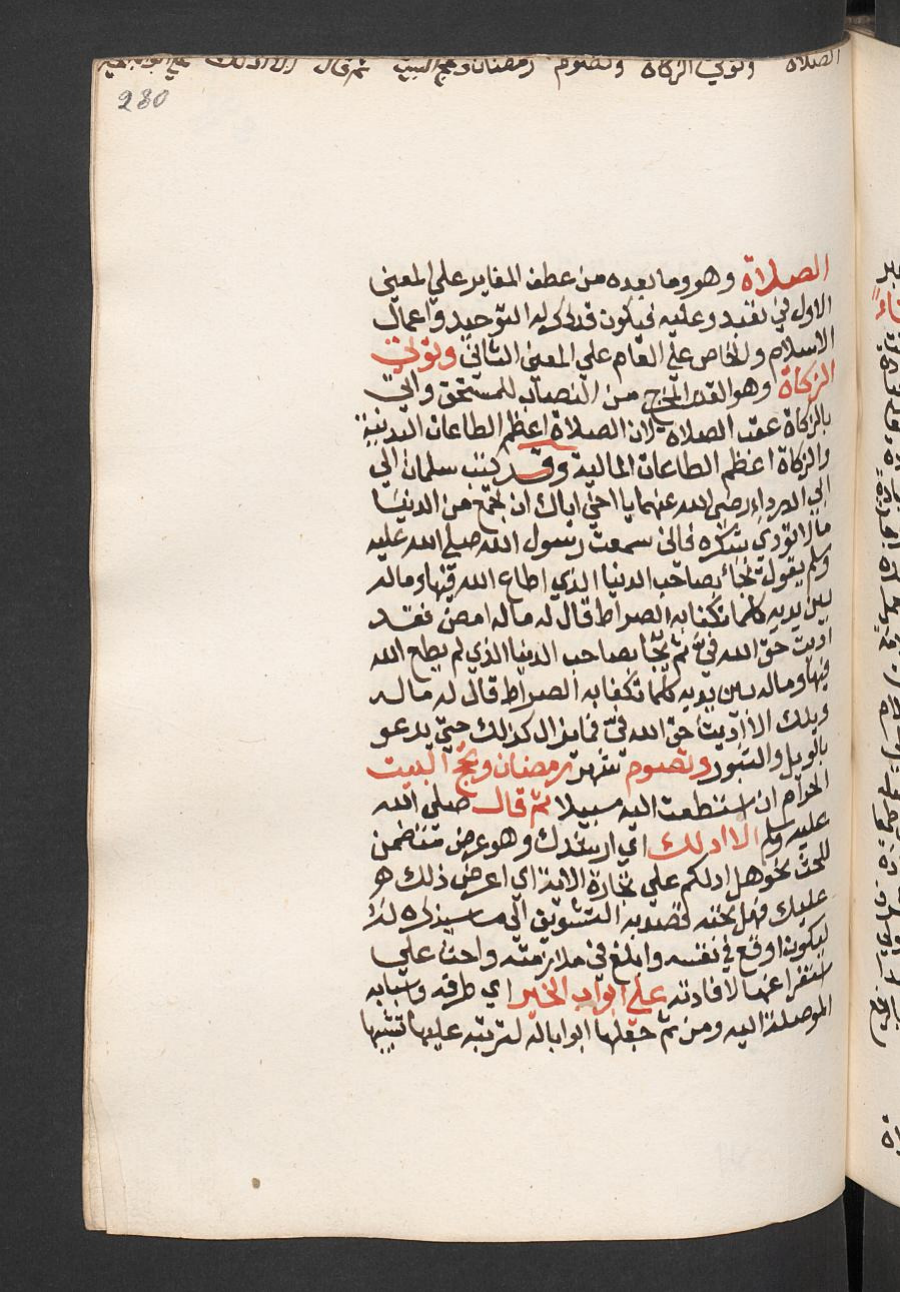 الصلاة وتؤتي الزكاة وتصوم رمضان وتحج البيت ثم قال الا ادلك على ابواب الخير
280
الصلاة وهو وما بعده من عطف المغاير علي المعني
الاول في تعبد وعليه فيكون قد ذكر له التوحيد واعمال
الاسلام والخاص علي العام علي المعني الثاني وتؤتي
الزكاة وهو القدر المخرج من النصاب للمستحق واتي
بالزكاة عقب الصلاة لان الصلاة اعظم الطاعات البدنية
والزكاة اعظم الطاعات المالية وقد كتب سلمان الي
ابي الدرداء رضي الله عنهما يا اخي اياك ان تجمع من الدنيا
مالا تؤدي شكره فاني سمعت رسول الله صلي الله عليه
وسلم يقول يجاء بصاحب الدنيا الذي اطاع الله فيها وماله
بين يديه كلما تكفا به الصراط قال له ماله امض فقد
اديت حق الله في ثم يجا بصاحب الدنيا الذي لم يطع الله
فيها وماله بين يديه كلما تكفا به الصراط قال له ماله
ويلك الا اديت حق الله في فما يزال كذلك حتي يدعو
بالويل والثبور وتصوم شهر رمضان وتحج البيت
الحرام ان استطعت اليه سبيلا ثم قال صلي الله
عليه وسلم الا ادلك اي ارشدك وهو عرض متضمن
للحث نحو هل ادلكم علي تجارة الاية اي اعرض ذلك هو
عليك فهل تحبه قصد به التشويق الي ما سيذكره له
ليكون اوقع في نفسه وابلغ في ملازمته واحث علي
استفراغها لافادته علي ابواب الخير اي طرقه واسبابه
الموصلة اليه ومن ثم جعلها ابوابا له لترتبه عليها تشبيها